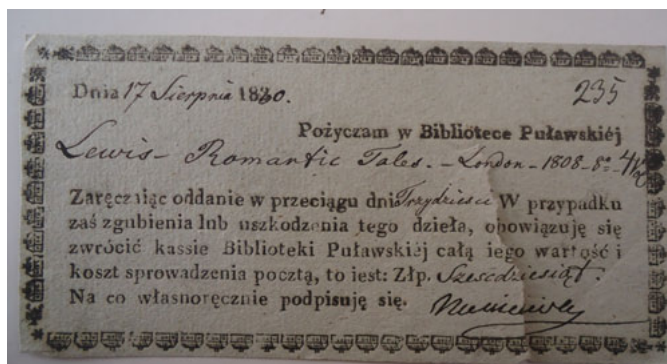 Dnia 17 Sierpnia 1830. 235
Pożyczam w Bibliotece Puławskiéj
Lewis – Romantic Tales. – London – 1808 – 8º –
Zaręczaiąc oddanie w przeciągu dni Trzydziestu W przypadku
zaś zgubienia lub uszkodzenia tego dzieła, obowiązuję się
zwrócić kassie Biblioteki Puławskiéj całą iego wartość i
koszt sprowadzenia pocztą, to iest: Złp. Sześćdziesiąt.
Na co własnoręcznie podpisuję się.